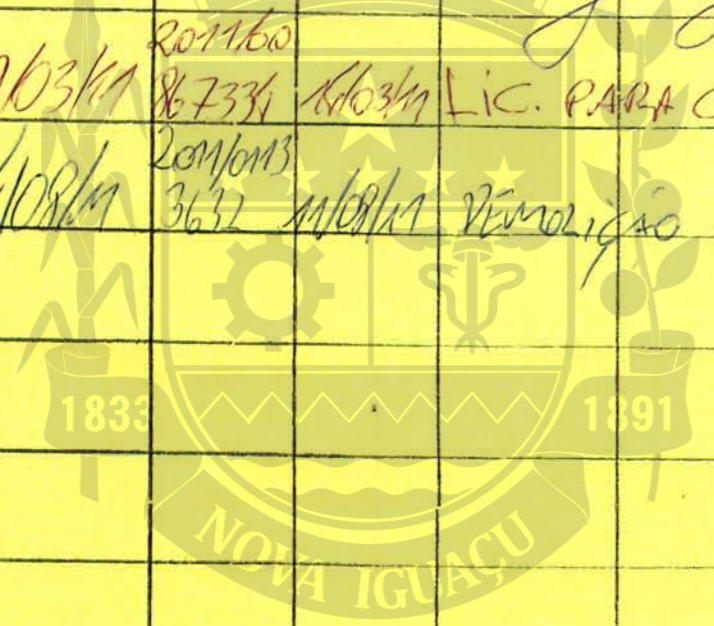 2011/60
/03/11 867334 15/03/11 LIC. PARA C
2011/0113
/08/11 3632 11/08/11 DEMOLIÇÃO
1833 1891
NOVA IGUAÇU